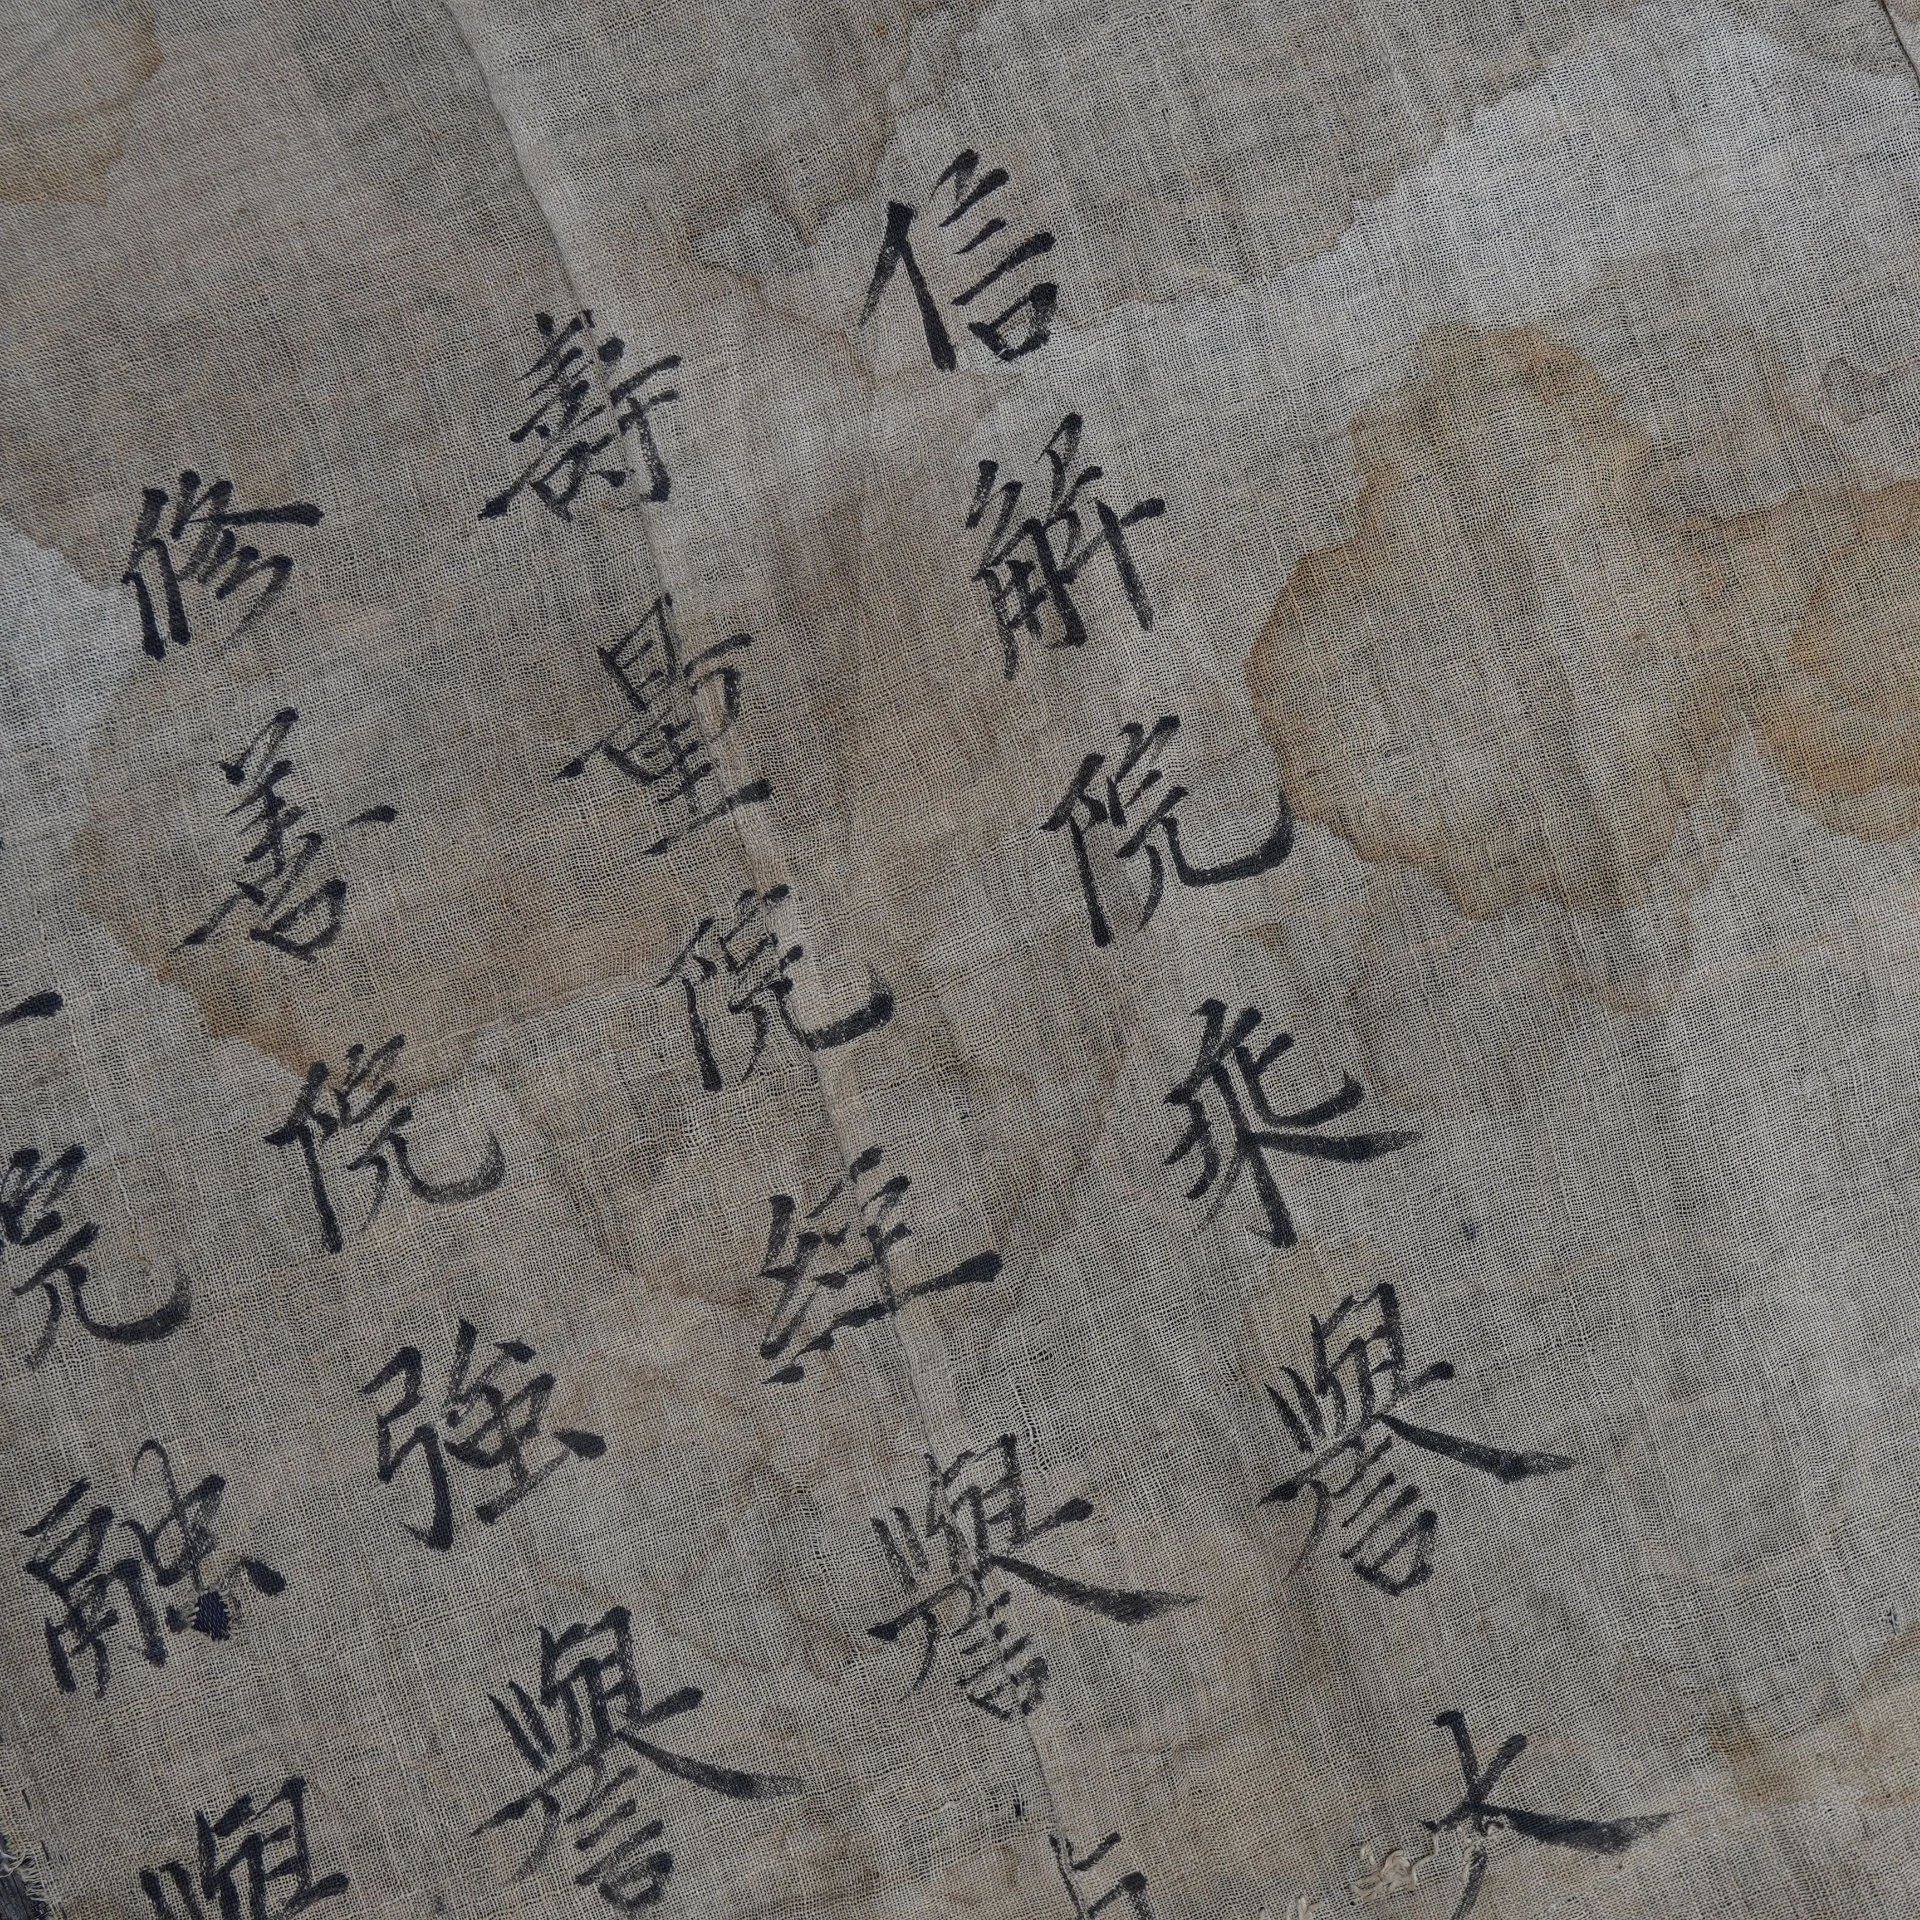 信解院乘譽大
壽量院経譽
修善院強譽
院融